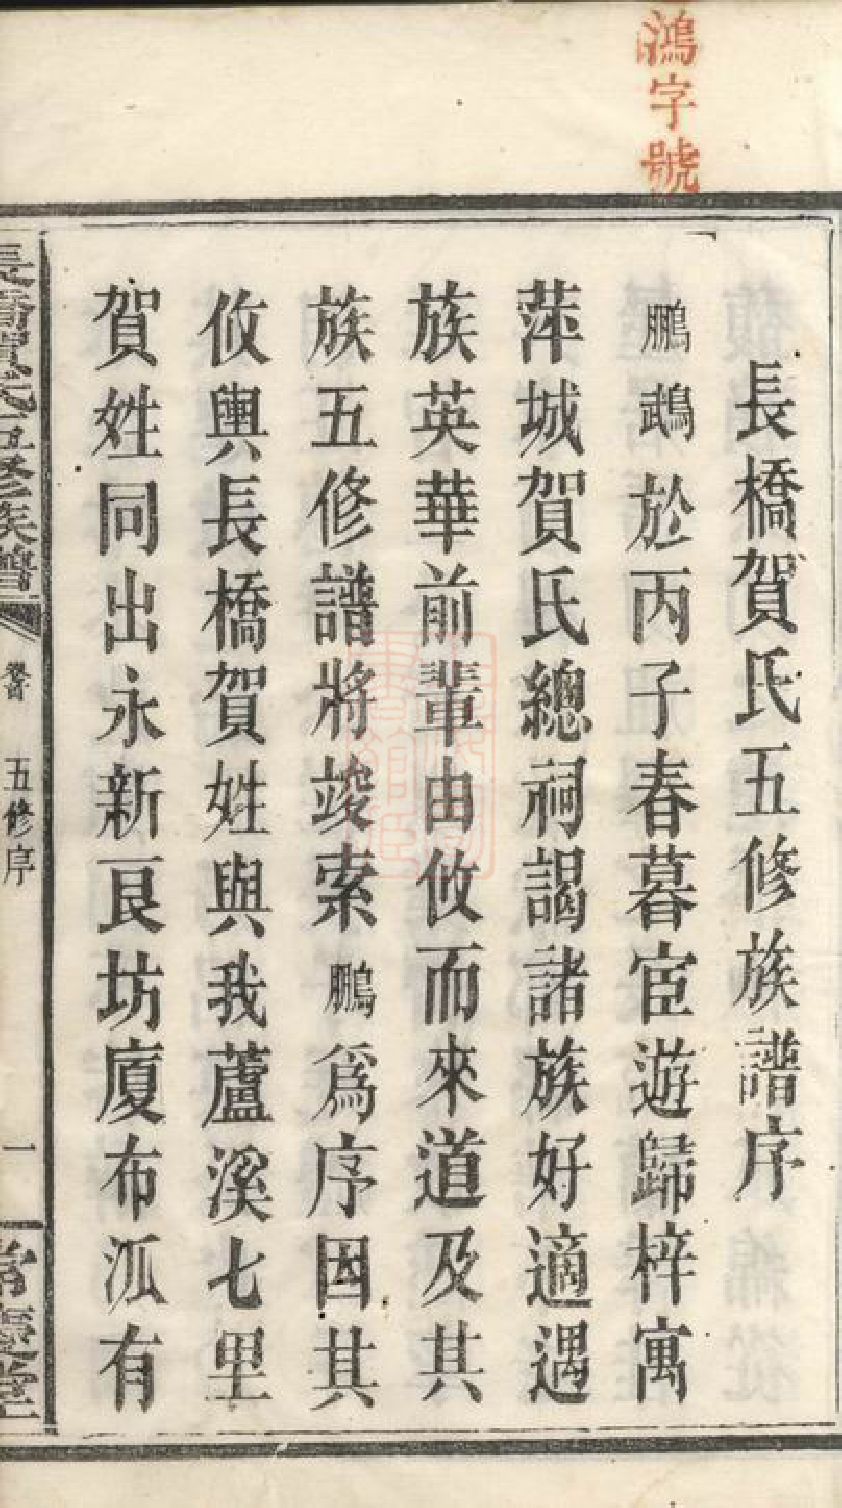 鴻字號
長橋賀氏五修族譜序
鵬鵡於丙子春暮宦遊歸梓寓
萍城賀氏總祠謁諸族好適遇
族英華前輩由攸而來道及其
族五修譜將竣索鵬爲序因其
攸輿長橋賀姓與我蘆溪七里
賀姓同出永新良坊廈布泒有
長橋賀氏五修族譜
卷首 五修序
一
常慶堂